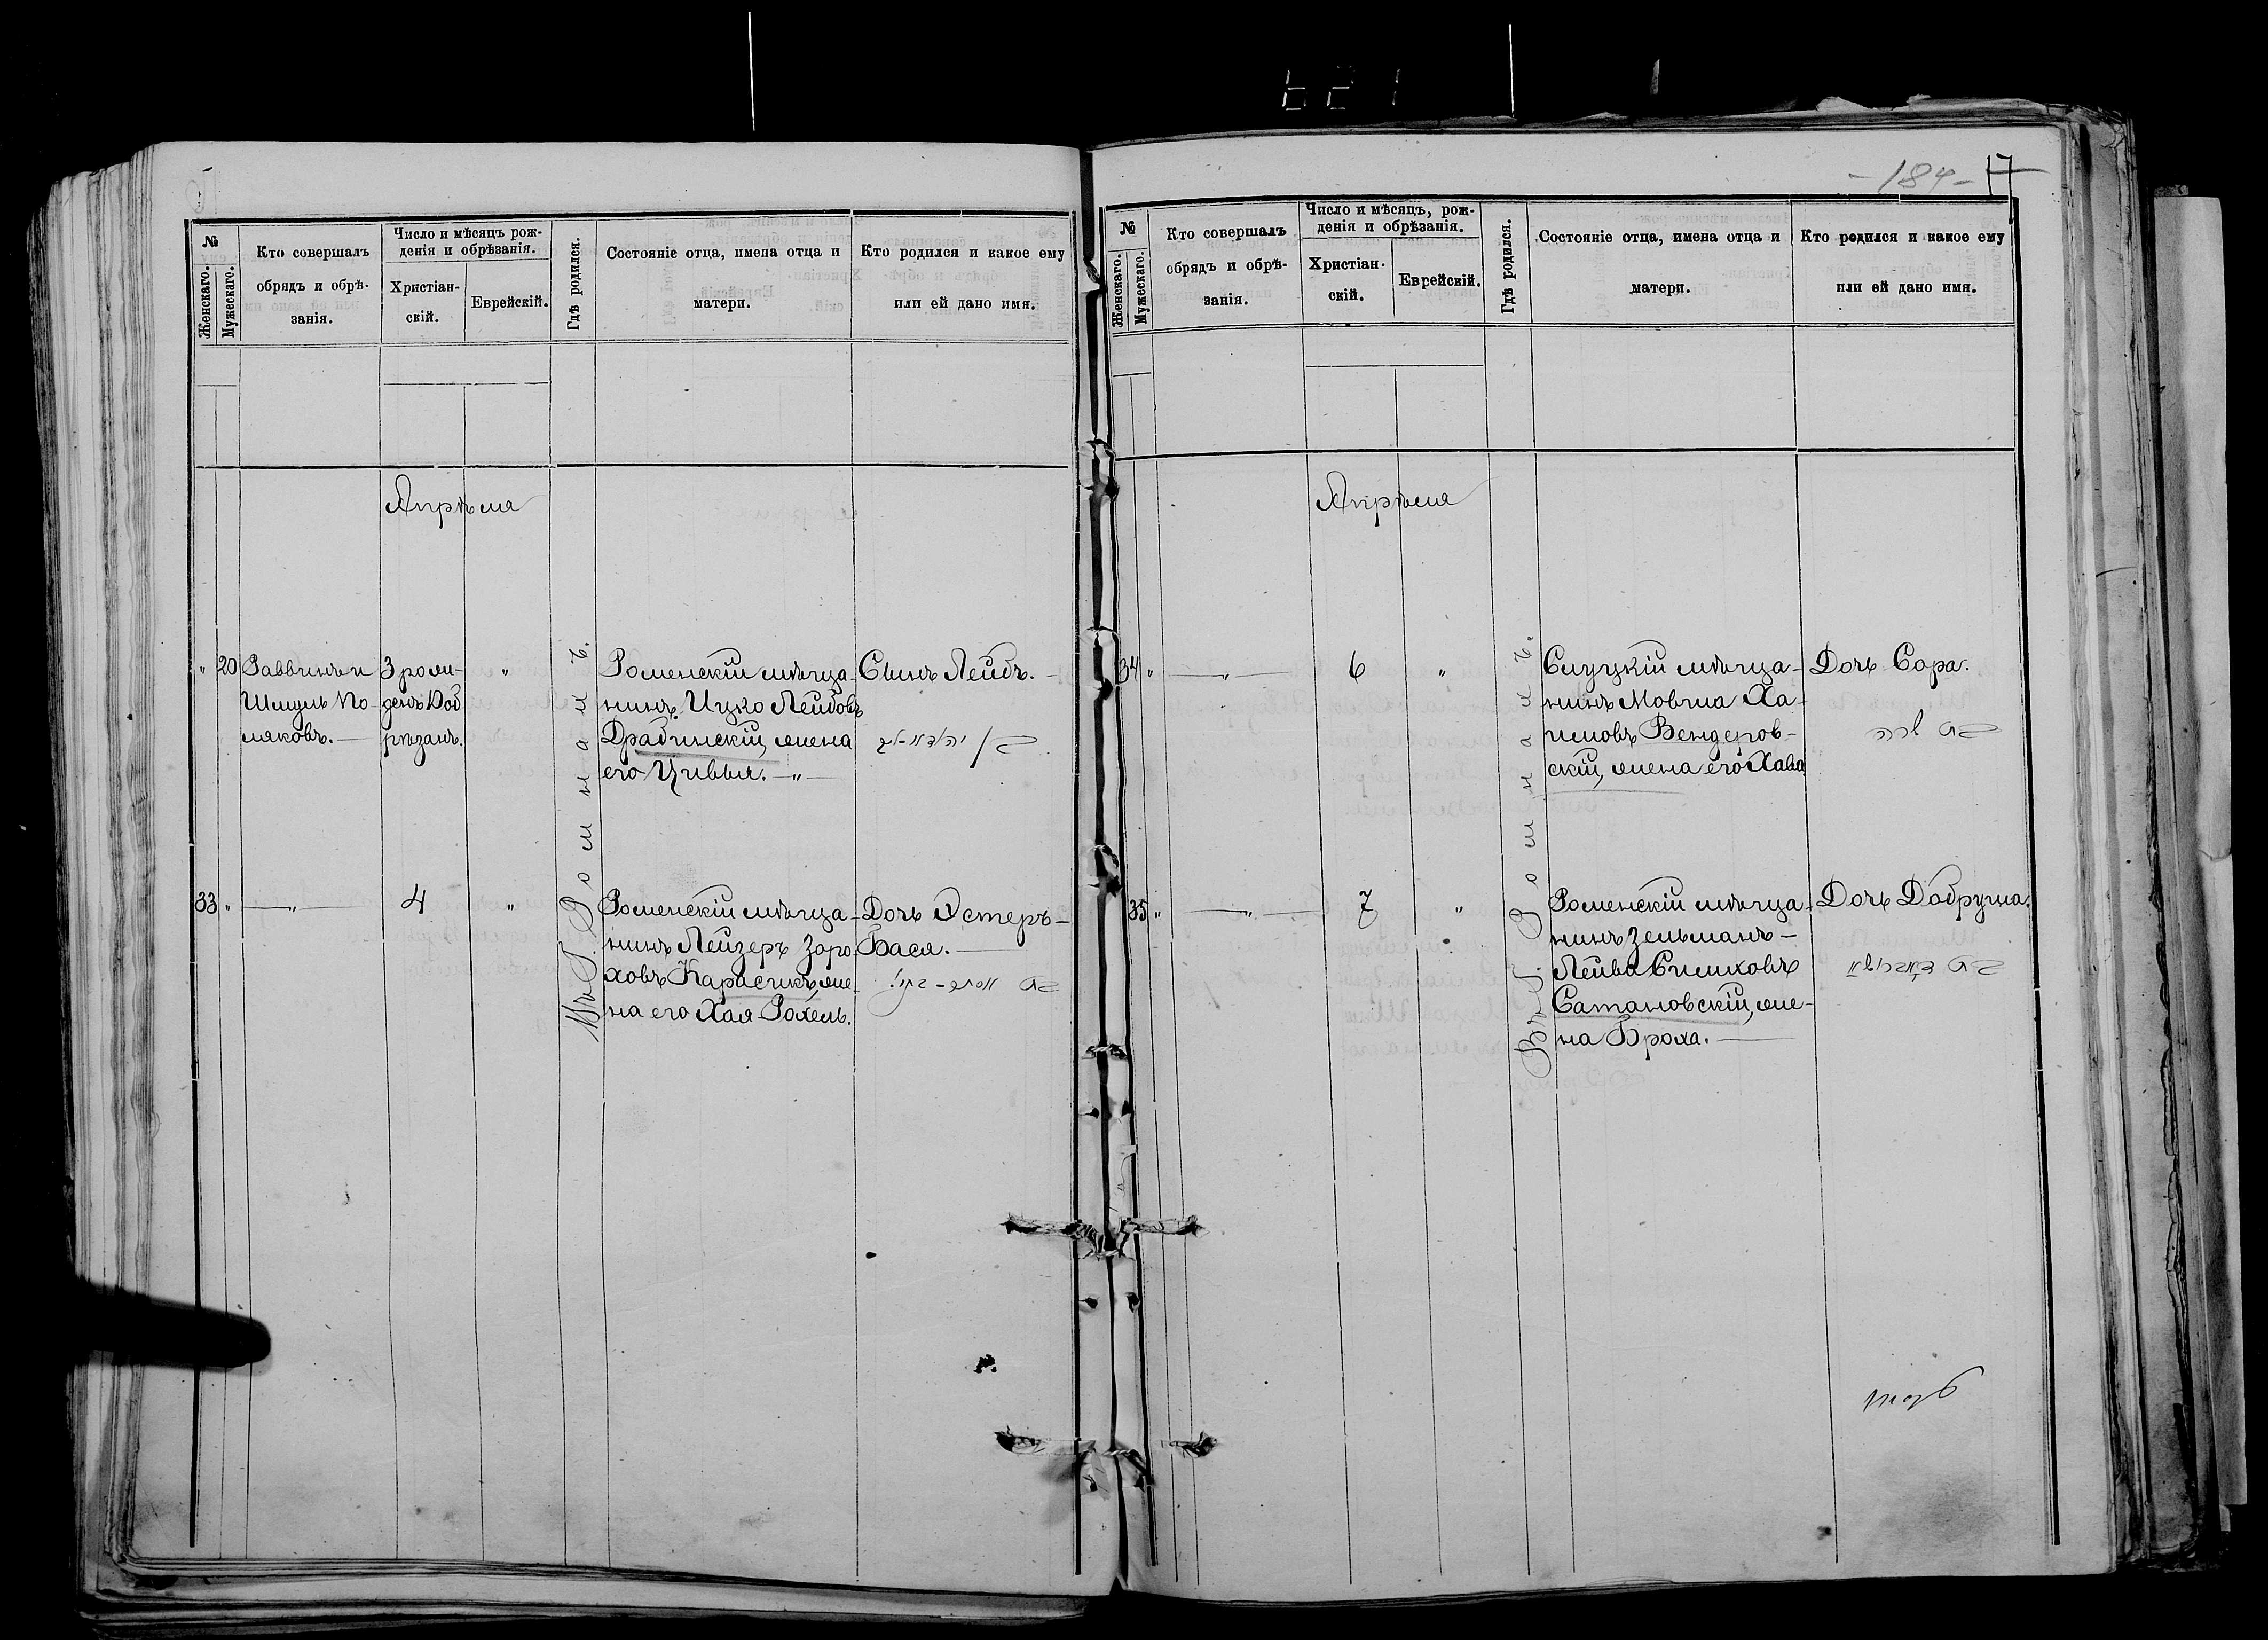 - 184 - 17
№
Женскаго.
Мужескаго.
Кто совершалъ
обрядъ и обрѣ-
занія.
Число и мѣсяцъ рож-
денія и обрѣзанія.
Христіан-
скій.
Еврейскій.
Гдѣ родился.
Состояніе отца, имена отца и
матери.
Кто родился и какое ему
или ей дано имя.
Апрѣля
" 20
Раввинъ и
Шмуль По-
ляковъ. —
3 роли-
"
Въ Г. Ромнахъ.
Роменскій мѣща-
нинъ Ицко Лейбовъ
Драбинскій, жена
его Цивья. — " —
Сынъ Лейбъ. —
33 "
— " —
4
"
Роменскій мѣща-
нинъ Лейзеръ Заро-
ховъ Карасикъ, же-
на его Хая-Рохель.
Дочь Эстеръ-
Бася. —
№
Женскаго.
Мужескаго.
Кто совершалъ
обрядъ и обрѣ-
занія.
Число и мѣсяцъ, рож-
денія и обрѣзанія.
Христіан-
скій.
Еврейскій.
Гдѣ родился.
Состояніе отца, имена отца и
матери.
Кто родился и какое ему
или ей дано имя.
Апрѣля
34 "
— " —
6
"
Въ Г. Ромнахъ.
Слуцкій мѣща-
нинъ Мовша Ха-
имовъ Вендеров-
скій, жена его Хава
Дочь Сора.
בת שרה
35 "
— " —
7
"
Роменскій мѣща-
нинъ Зельманъ-
Лейба Симховъ
Сатановскій, же-
на Броха. —
Дочь Добруша.